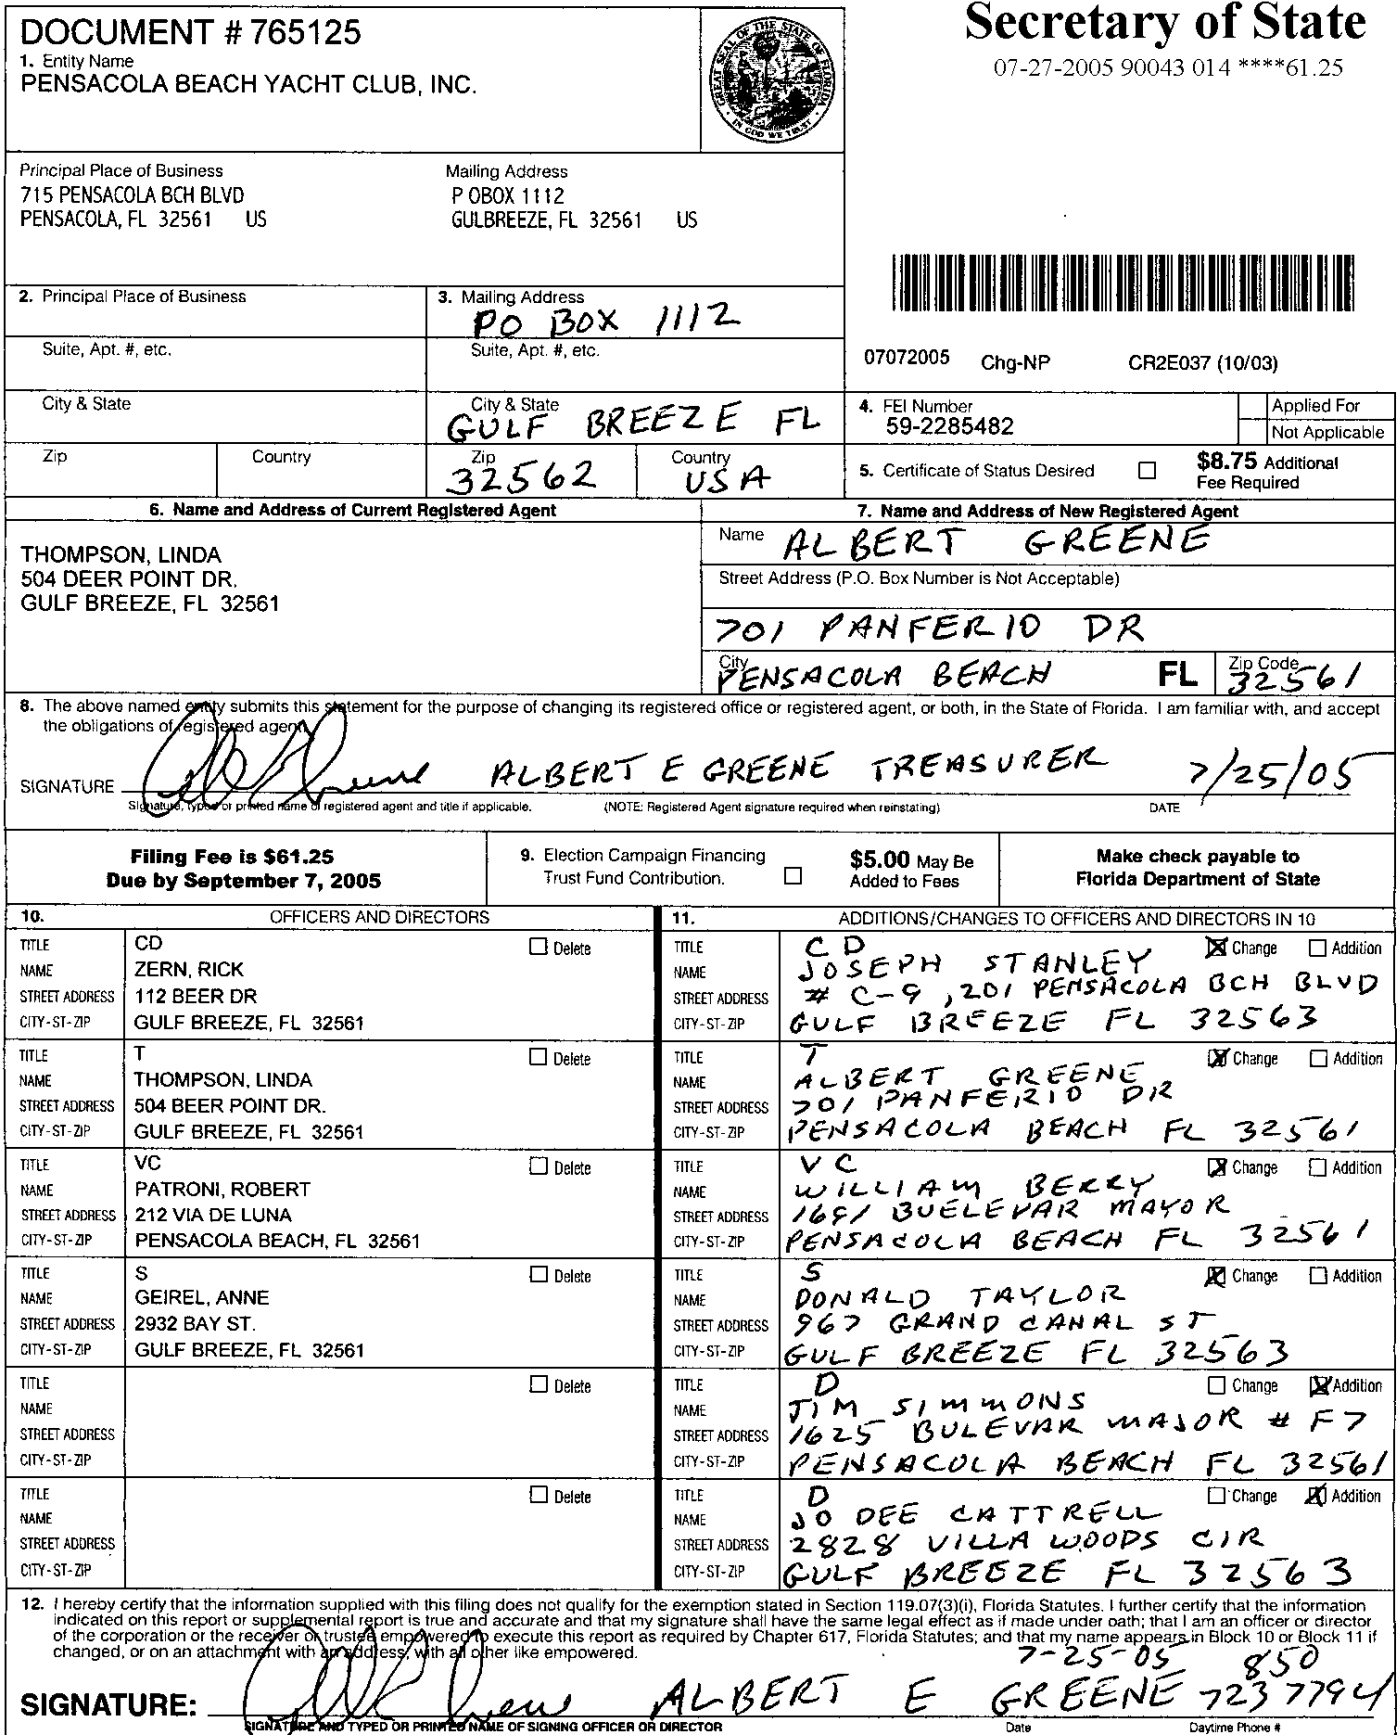 DOCUMENT # 765125
1. Entity Name
PENSACOLA BEACH YACHT CLUB, INC.
GREAT SEAL OF THE STATE OF FLORIDA
IN GOD WE TRUST
Secretary of State
07-27-2005 90043 014 ****61.25
Principal Place of Business
715 PENSACOLA BCH BLVD
PENSACOLA, FL 32561 US
Mailing Address
P OBOX 1112
GULBREEZE, FL 32561 US
2. Principal Place of Business
3. Mailing Address
PO BOX 1112
Suite, Apt. #, etc.
Suite, Apt. #, etc.
07072005 Chg-NP CR2E037 (10/03)
City & State
City & State
GULF BREEZE FL
4. FEI Number
59-2285482
Applied For
Not Applicable
Zip
Country
Zip
32562
Country
USA
5. Certificate of Status Desired
$8.75 Additional
Fee Required
6. Name and Address of Current Registered Agent
THOMPSON, LINDA
504 DEER POINT DR.
GULF BREEZE, FL 32561
7. Name and Address of New Registered Agent
Name ALBERT GREENE
Street Address (P.O. Box Number is Not Acceptable)
701 PANFERIO DR
City PENSACOLA BEACH FL Zip Code 32561
8. The above named entity submits this statement for the purpose of changing its registered office or registered agent, or both, in the State of Florida. I am familiar with, and accept
the obligations of registered agent.
SIGNATURE ALBERT E GREENE TREASURER 7/25/05
Signature, typed or printed name of registered agent and title if applicable. (NOTE: Registered Agent signature required when reinstating) DATE
Filing Fee is $61.25
Due by September 7, 2005
9. Election Campaign Financing
Trust Fund Contribution.
$5.00 May Be
Added to Fees
Make check payable to
Florida Department of State
10. OFFICERS AND DIRECTORS
TITLE CD Delete
NAME ZERN, RICK
STREET ADDRESS 112 BEER DR
CITY-ST-ZIP GULF BREEZE, FL 32561
TITLE T Delete
NAME THOMPSON, LINDA
STREET ADDRESS 504 BEER POINT DR.
CITY-ST-ZIP GULF BREEZE, FL 32561
TITLE VC Delete
NAME PATRONI, ROBERT
STREET ADDRESS 212 VIA DE LUNA
CITY-ST-ZIP PENSACOLA BEACH, FL 32561
TITLE S Delete
NAME GEIREL, ANNE
STREET ADDRESS 2932 BAY ST.
CITY-ST-ZIP GULF BREEZE, FL 32561
TITLE Delete
NAME
STREET ADDRESS
CITY-ST-ZIP
TITLE Delete
NAME
STREET ADDRESS
CITY-ST-ZIP
11. ADDITIONS/CHANGES TO OFFICERS AND DIRECTORS IN 10
TITLE CD Change Addition
NAME JOSEPH STANLEY
STREET ADDRESS # C-9, 201 PENSACOLA BCH BLVD
CITY-ST-ZIP GULF BREEZE FL 32563
TITLE T Change Addition
NAME ALBERT GREENE
STREET ADDRESS 701 PANFERIO DR
CITY-ST-ZIP PENSACOLA BEACH FL 32561
TITLE VC Change Addition
NAME WILLIAM BERRY
STREET ADDRESS 1691 BUELEVAR MAYOR
CITY-ST-ZIP PENSACOLA BEACH FL 32561
TITLE S Change Addition
NAME DONALD TAYLOR
STREET ADDRESS 967 GRAND CANAL ST
CITY-ST-ZIP GULF BREEZE FL 32563
TITLE D Change Addition
NAME JIM SIMMONS
STREET ADDRESS 1625 BULEVAR MAJOR # F7
CITY-ST-ZIP PENSACOLA BEACH FL 32561
TITLE D Change Addition
NAME JO DEE CATTRELL
STREET ADDRESS 2828 VILLA WOODS CIR
CITY-ST-ZIP GULF BREEZE FL 32563
12. I hereby certify that the information supplied with this filing does not qualify for the exemption stated in Section 119.07(3)(i), Florida Statutes. I further certify that the information
indicated on this report or supplemental report is true and accurate and that my signature shall have the same legal effect as if made under oath; that I am an officer or director
of the corporation or the receiver or trustee empowered to execute this report as required by Chapter 617, Florida Statutes; and that my name appears in Block 10 or Block 11 if
changed, or on an attachment with an address, with all other like empowered.
7-25-05 850
SIGNATURE: ALBERT E GREENE 7237794
SIGNATURE AND TYPED OR PRINTED NAME OF SIGNING OFFICER OR DIRECTOR Date Daytime Phone #